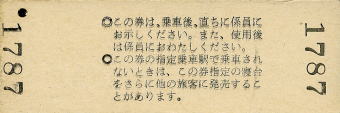 1787
◎この券は、乗車後、直ちに係員に
お示しください。また、使用後
は係員におわたしください。
◎この券の指定乗車駅で乗車され
ないときは、この券指定の寝台
をさらに他の旅客に発売するこ
とがあります。
1787